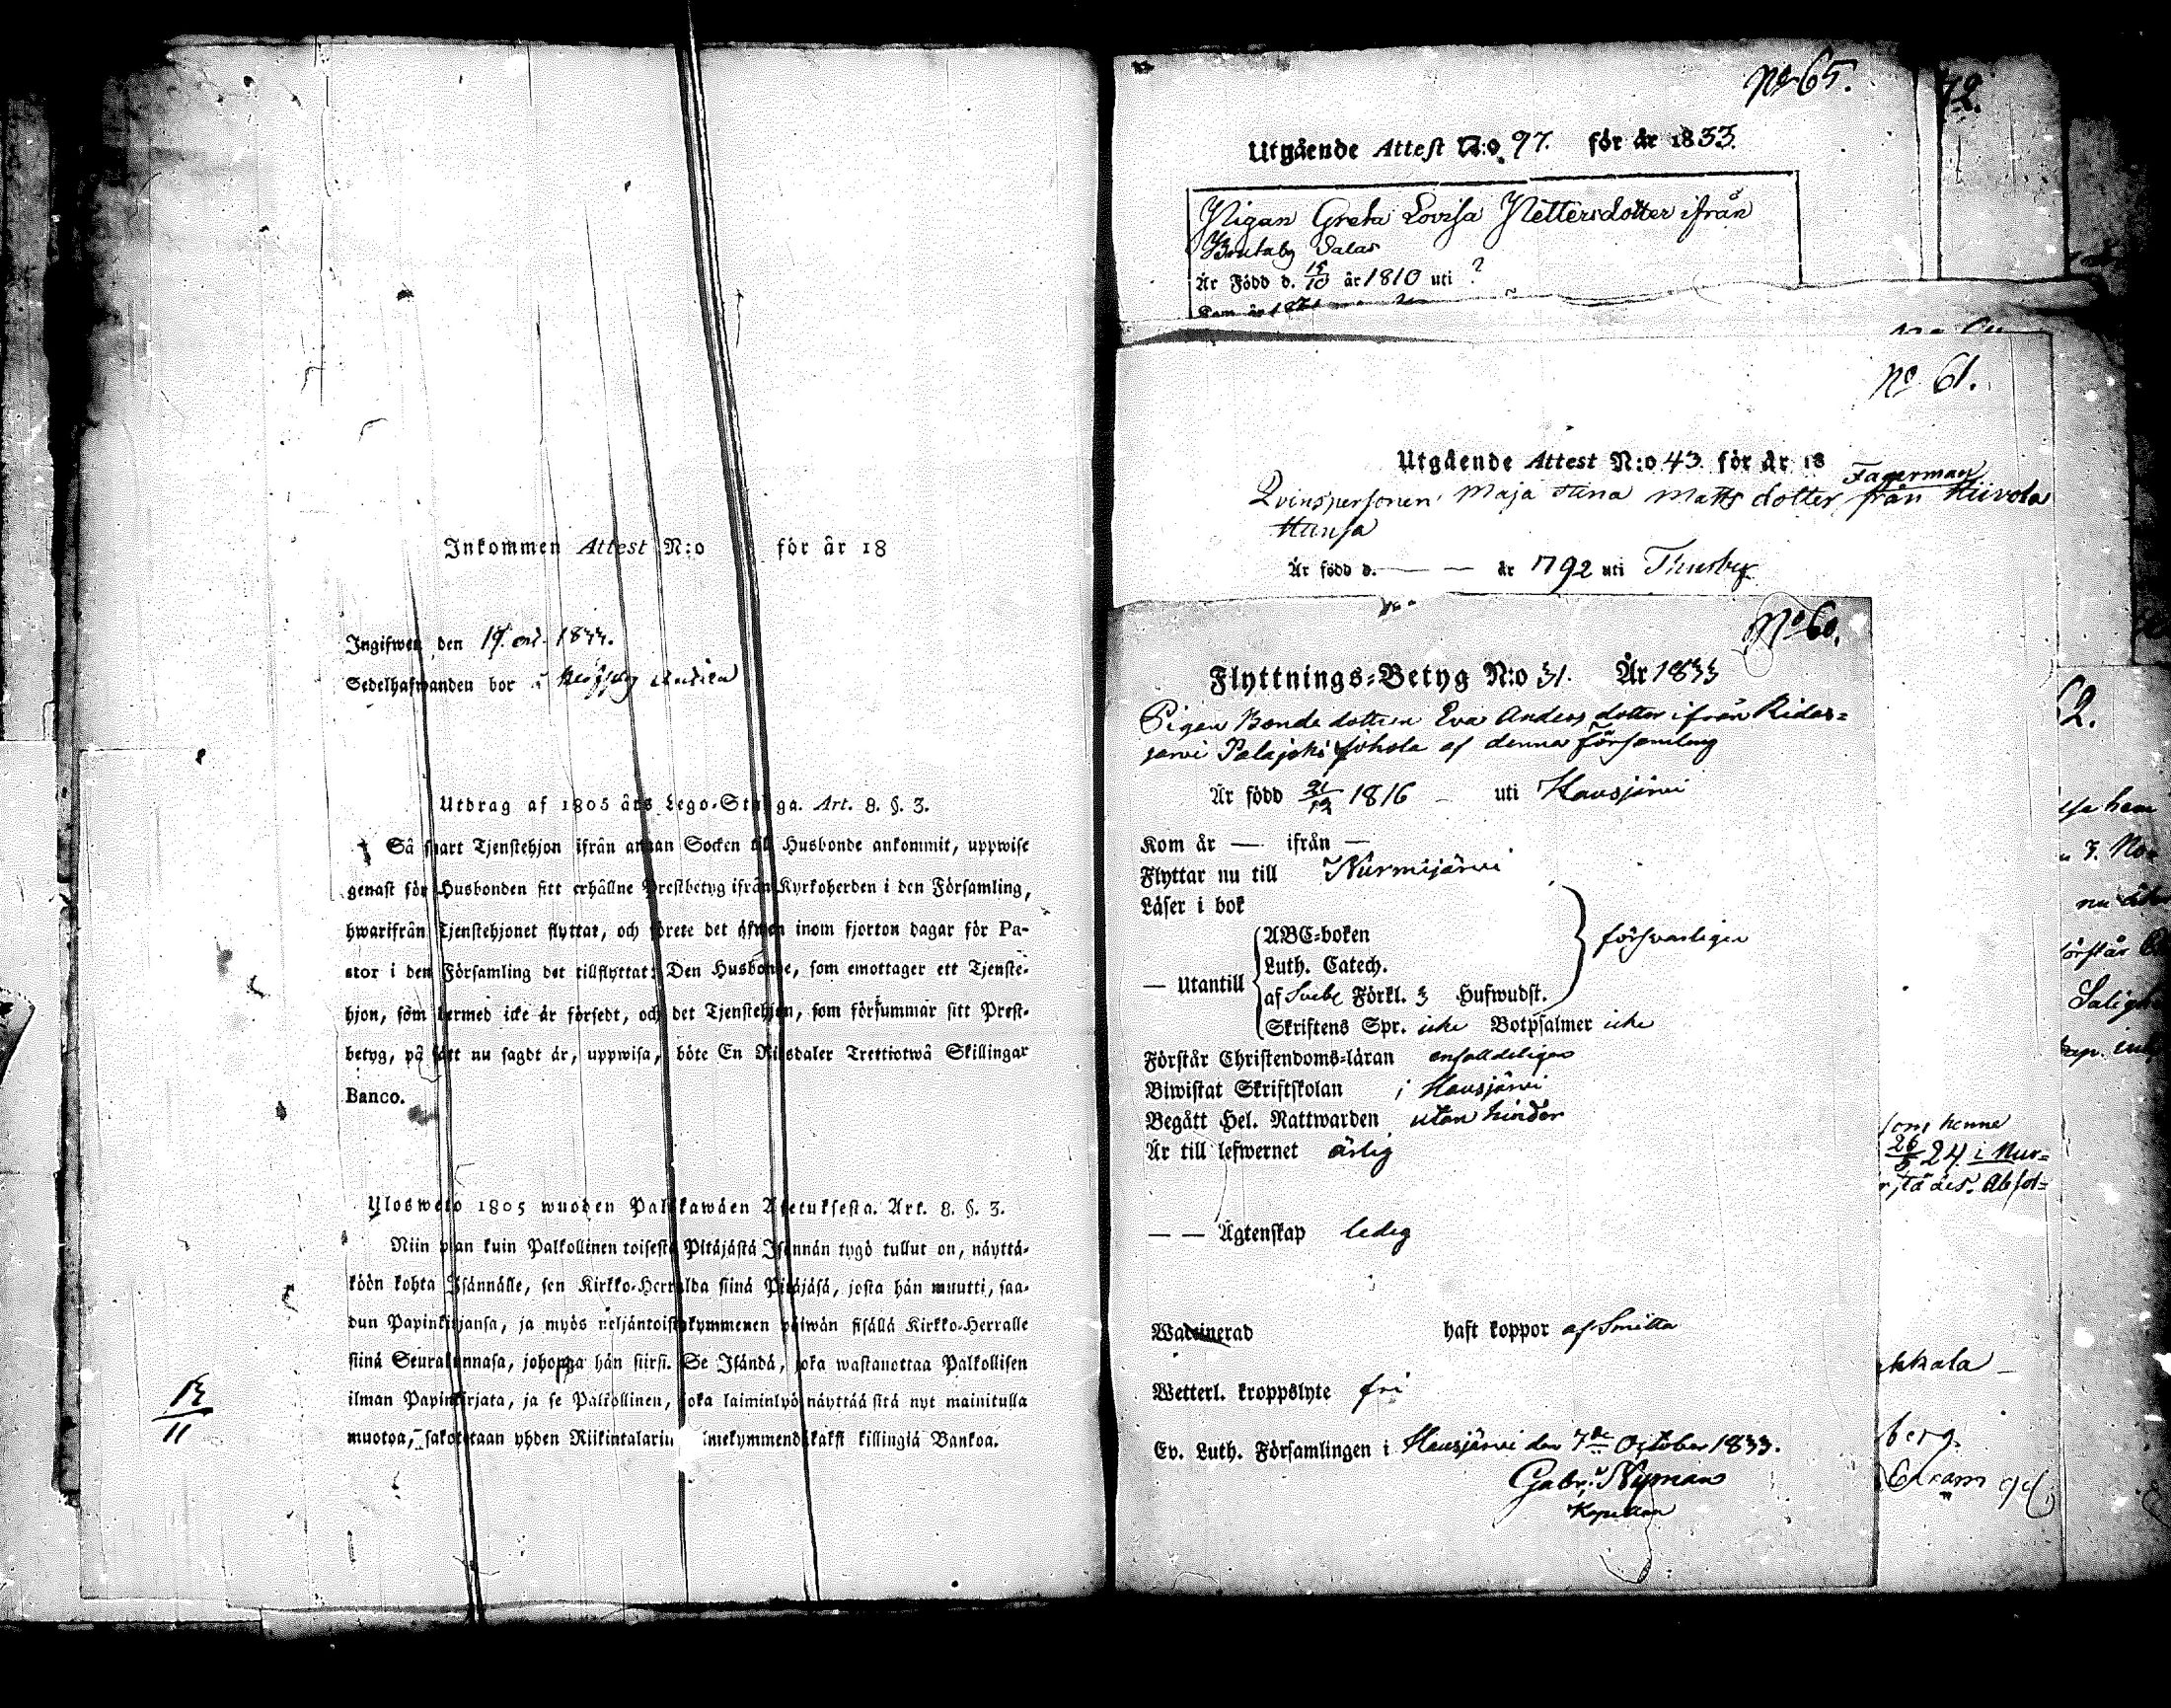 Inkommen Attest N:o för år 18
Ingifwen den 1833.
Sedelhafwanden bor
Utdrag af 1805 års Lego-Stadga. Art. 8. §. 3.
Så snart Tjenstehjon ifrån annan Socken till Husbonde ankommit, uppwise
genast för Husbonden sitt erhållne Prestbetyg ifrån Kyrkoherden i den Församling,
hwarifrån Tjenstehjonet flyttat, och förete det äfwen inom fjorton dagar för Pa-
stor i den Församling det tillflyttat: Den Husbonde, som emottager ett Tjenste-
hjon, som dermed icke är försedt, och det Tjenstehjon, som försummar sitt Prest-
betyg, på sätt nu sagdt är, uppwisa, böte En Riksdaler Trettiotwå Skillingar
Banco.
Ulosweto 1805 wuoden Palkkawäen Asetuksesta. Art. 8. §. 3.
Niin pian kuin Palkollinen toisesta Pitäjästä Isännän tygö tullut on, näyttä-
köön kohta Isännälle, sen Kirkko-Herralda siinä Pitäjäsä, josta hän muutti, saa-
dun Papinkirjansa, ja myös neljäntoistakymmenen päiwän sisällä Kirkko-Herralle
siinä Seurakunnasa, johonga hän siirsi. Se Isändä, joka wastanottaa Palkollisen
ilman Papinkirjata, ja se Palkollinen, joka laiminlyö näyttää sitä nyt mainitulla
muotoa, sakotetaan yhden Riikintalarin kolmekymmendäkaksi killingiä Bankoa.
13/11
No 65.
72.
Utgående Attest N:o 97. för år 1833.
Pigan Greta Lovisa Pettersdotter ifrån
Är Född d. 15/10 år 1810 uti ?
No 61.
Utgående Attest N:o 43 för år 18
Fagerman
Qvinspersonen Maja Stina Matts dotter från
Är född d. — — år 1792 uti Thusby
No 60.
Flyttnings-Betyg N:o 31. År 1833
Pigan Bonde dottern Eva Anders dotter ifrån Ridas=
jarvi Palajoki af denna församling
Är född 21/12 1816 — uti Hausjärvi
Kom år — ifrån —
Flyttar nu till Nurmijärvi
Läser i bok
— Utantill ABC-boken försvarligen
Luth. Catech.
af Svebe Förkl. 3 Hufwudst.
Skriftens Spr. icke Botpsalmer icke
Förstår Christendoms-läran enfalldeligen
Biwistat Skriftskolan i Hausjärvi
Begått Hel. Nattwarden utan hinder
Är till lefwernet ärlig
— — Ägtenskap ledig
Waccinerad haft koppor af Smitta
Wetterl. kroppslyte fri
Ev. Luth. Församlingen i Hausjärvi den 7de October 1833.
Gabr. Nyman
Kapellan
som henne
26/3 24 i Nur=
kkala —
berg.
62.
3. No
förstår
Saligh